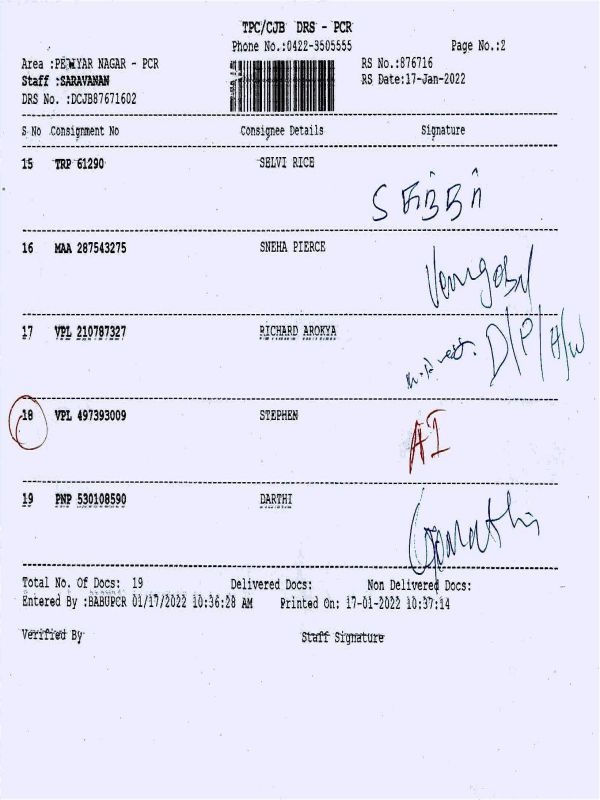 TPC/CJB DRS - PCR
Phone No.:0422-3505555 Page No.:2
Area :PERIYAR NAGAR - PCR RS No.:876716
Staff :SARAVANAN RS Date:17-Jan-2022
DRS No. :DCJB87671602
S No Consignment No Consignee Details Signature
15 TRP 61290 SELVI RICE
16 MAA 287543275 SNEHA PIERCE
Venugobal
17 VPL 210787327 RICHARD AROKYA
D/P/H/W
18 VPL 497393009 STEPHEN
AI
19 PNP 530108590 DARTHI
Gomathi
Total No. Of Docs: 19 Delivered Docs: Non Delivered Docs:
Entered By :BABUPCR 01/17/2022 10:36:28 AM Printed On: 17-01-2022 10:37:14
Verified By Staff Signature